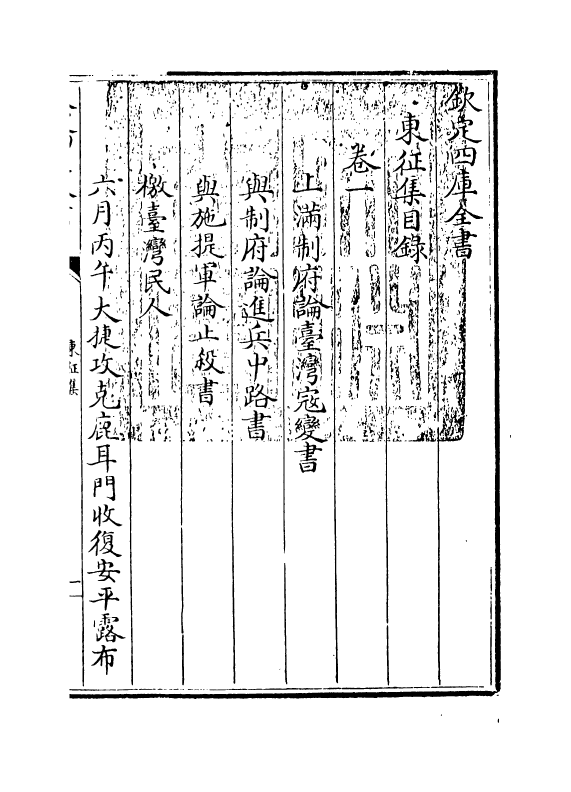 欽定四庫全書
東征集目錄
卷一
上滿制府論臺灣寇變書
與制府論進兵中路書
與施提軍論止殺書
檄臺灣民人
六月丙午大捷攻克鹿耳門收復安平露布
東征集
一